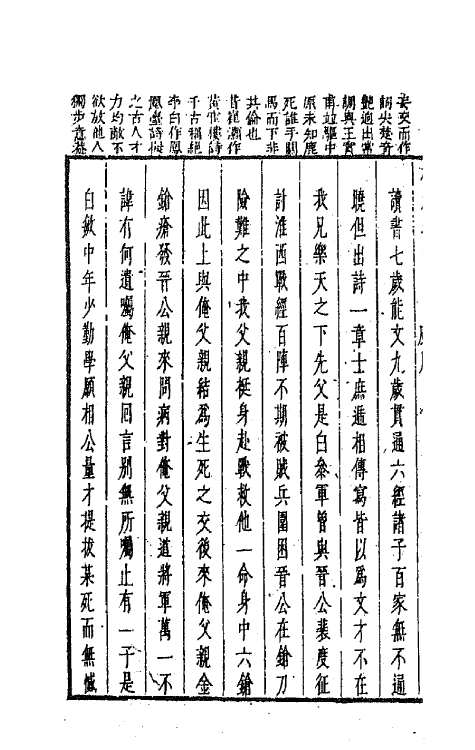 詞尖楚奇
艷逈出常
調與王實
甫竝驅中
原未知鹿
死誰手關
馬而下非
其倫也
昔崔灝作
千古稱絕
李白作鳳
凰臺詩
之古人才
力均敵不
欲放他人
獨步意
讀書七歲能文九歲貫通六經諸子百家無不通
曉但出詩一章士庶遞相傳寫皆以爲文才不在
我兄樂天之下先父是白參軍曾與晉公裴度征
討淮西戰經百陣不期被賊兵圍困晉公在鎗刀
險難之中我父親挺身赴戰救他一命身中六鎗
因此上與俺父親結爲生死之交後來俺父親金
鎗瘡發晉公親來問病對俺父親道將軍萬一不
諱有何遺囑俺父親回言別無所囑止有一子是
白敏中年少勤學願相公量才提拔某死而無憾